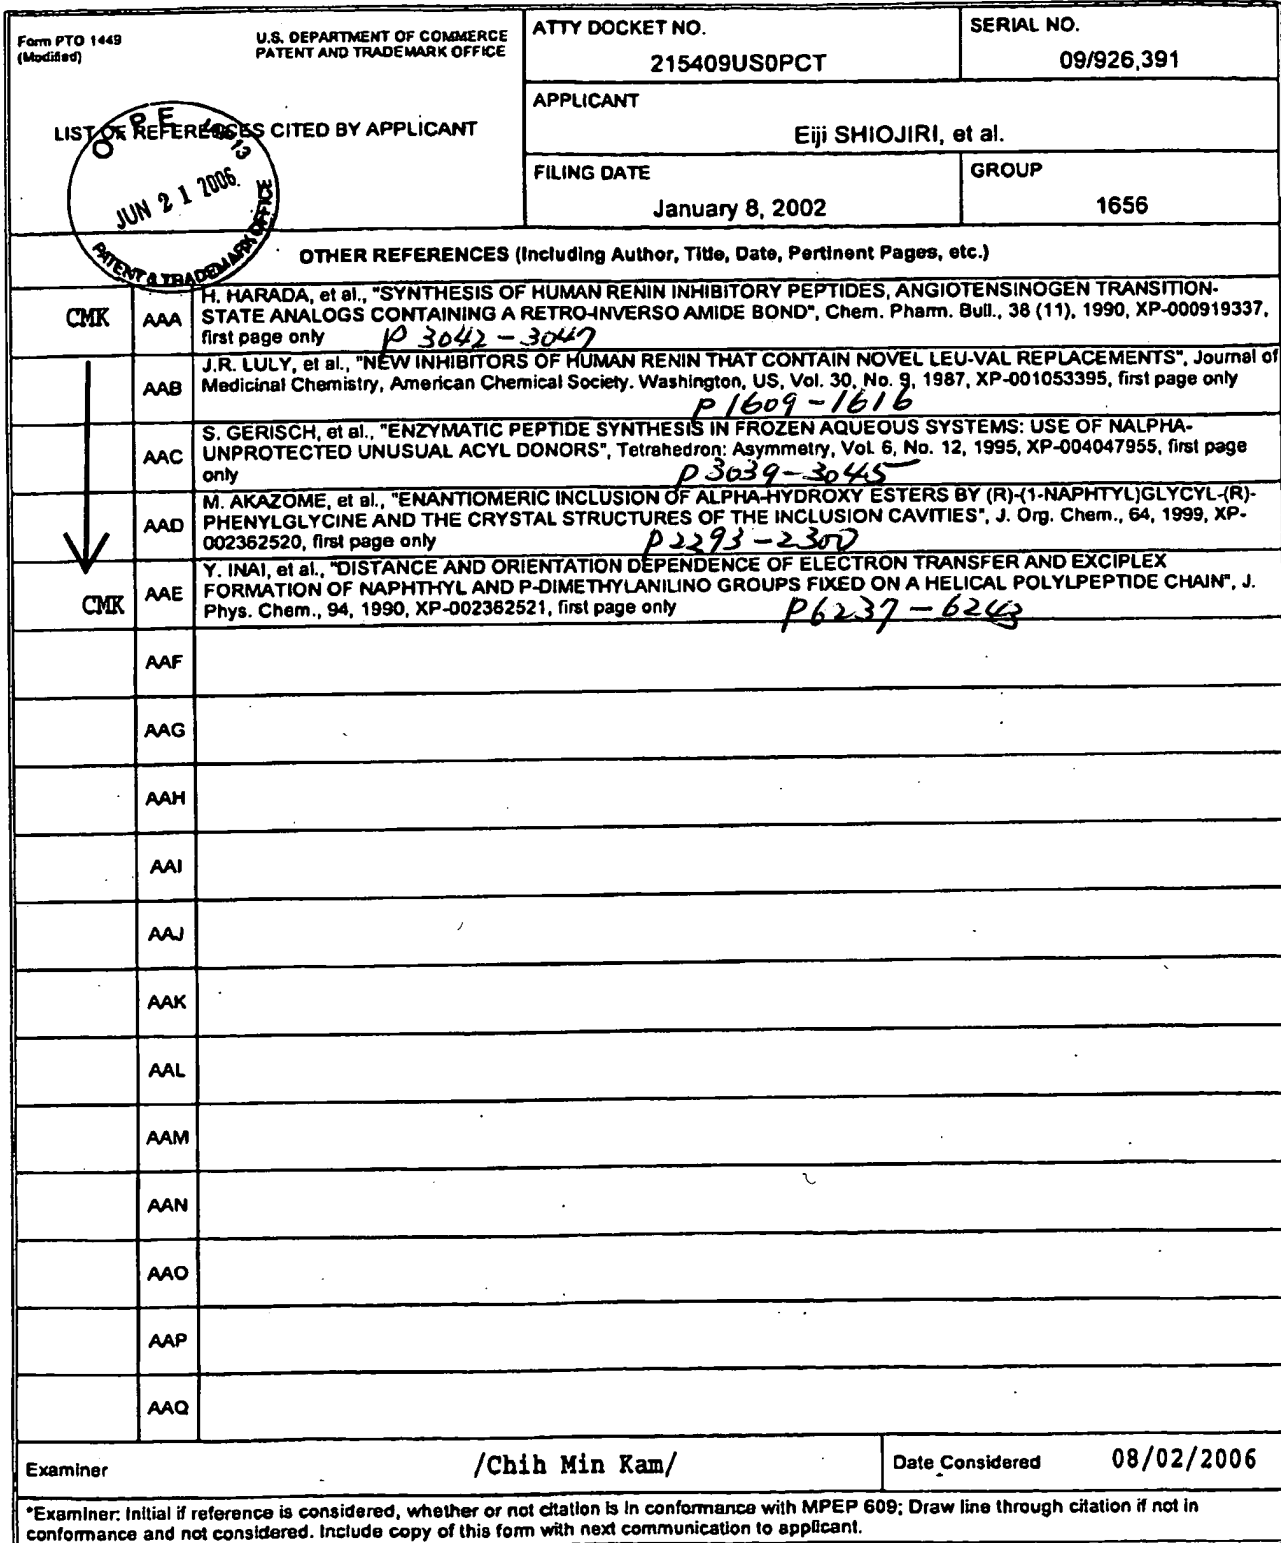 Form PTO 1449
(Modified)
U.S. DEPARTMENT OF COMMERCE
PATENT AND TRADEMARK OFFICE
ATTY DOCKET NO.
215409US0PCT
SERIAL NO.
09/926,391
LIST OF REFERENCES CITED BY APPLICANT
APPLICANT
Eiji SHIOJIRI, et al.
FILING DATE
January 8, 2002
GROUP
1656
O I P E
JUN 2 1 2006
PATENT & TRADEMARK OFFICE
OTHER REFERENCES (Including Author, Title, Date, Pertinent Pages, etc.)
CMK
AAA
H. HARADA, et al., "SYNTHESIS OF HUMAN RENIN INHIBITORY PEPTIDES, ANGIOTENSINOGEN TRANSITION-
STATE ANALOGS CONTAINING A RETRO-INVERSO AMIDE BOND", Chem. Pharm. Bull., 38 (11), 1990, XP-000919337,
first page only p 3042-3047
AAB
J.R. LULY, et al., "NEW INHIBITORS OF HUMAN RENIN THAT CONTAIN NOVEL LEU-VAL REPLACEMENTS", Journal of
Medicinal Chemistry, American Chemical Society. Washington, US, Vol. 30, No. 9, 1987, XP-001053395, first page only
p 1609-1616
AAC
S. GERISCH, et al., "ENZYMATIC PEPTIDE SYNTHESIS IN FROZEN AQUEOUS SYSTEMS: USE OF NALPHA-
UNPROTECTED UNUSUAL ACYL DONORS", Tetrahedron: Asymmetry, Vol. 6, No. 12, 1995, XP-004047955, first page
only p 3039-3045
AAD
M. AKAZOME, et al., "ENANTIOMERIC INCLUSION OF ALPHA-HYDROXY ESTERS BY (R)-(1-NAPHTYL)GLYCYL-(R)-
PHENYLGLYCINE AND THE CRYSTAL STRUCTURES OF THE INCLUSION CAVITIES", J. Org. Chem., 64, 1999, XP-
002362520, first page only p 2293-2300
CMK
AAE
Y. INAI, et al., "DISTANCE AND ORIENTATION DEPENDENCE OF ELECTRON TRANSFER AND EXCIPLEX
FORMATION OF NAPHTHYL AND P-DIMETHYLANILINO GROUPS FIXED ON A HELICAL POLYLPEPTIDE CHAIN", J.
Phys. Chem., 94, 1990, XP-002362521, first page only p 6237-6243
AAF
AAG
AAH
AAI
AAJ
AAK
AAL
AAM
AAN
AAO
AAP
AAQ
Examiner
/Chih Min Kam/
Date Considered
08/02/2006
*Examiner: Initial if reference is considered, whether or not citation is in conformance with MPEP 609; Draw line through citation if not in
conformance and not considered. Include copy of this form with next communication to applicant.